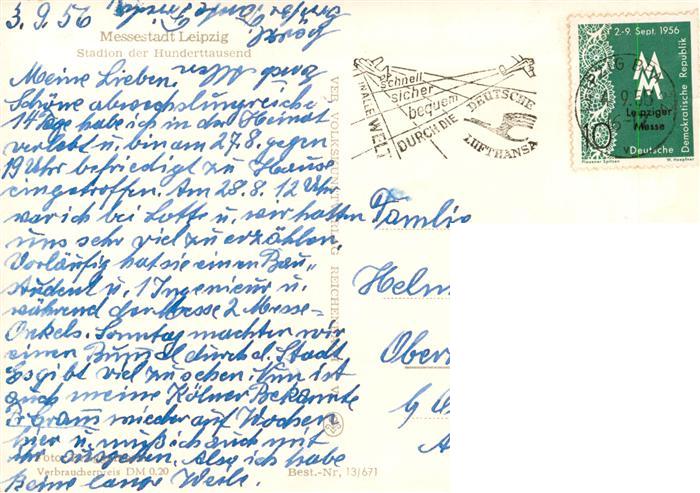 3.9.56
Messestadt Leipzig
Stadion der Hunderttausend
Meine Lieben,
Schöne abwechslungsreiche
14 Tage habe ich in der Heimat
verlebt u. bin am 27.8. gegen
19 Uhr befriedigt zu Hause
eingetroffen. Am 28.8. 12 Uhr
war ich bei Lotte u. wir hatten
uns sehr viel zu erzählen.
Vorläufig hat sie einen Bau-
student u. 1 Ingenieur u.
während der Messe 2 Messe-
Onkels. Sonntag machten wir
einen Bummel durch d. Stadt
Es gibt viel zu sehen. Nun ist
auch meine Kölner Bekannte
wieder auf Wochen
hier u. muß ich auch mit
ihr ausgehen. Also ich habe
keine lange Weile.
Verbraucherpreis DM 0,20
Best.-Nr. 13/671
VER VOLKSKUNSTVERLAG REICHENBACH
schnell
sicher
bequem
DURCH DIE
DEUTSCHE
LUFTHANSA
WELT
2.-9. Sept. 1956
MM
Leipziger
Messe
10
Deutsche Demokratische Republik
Plauener Spitzen
W. Hoepfner
Familie
Helm
Ober